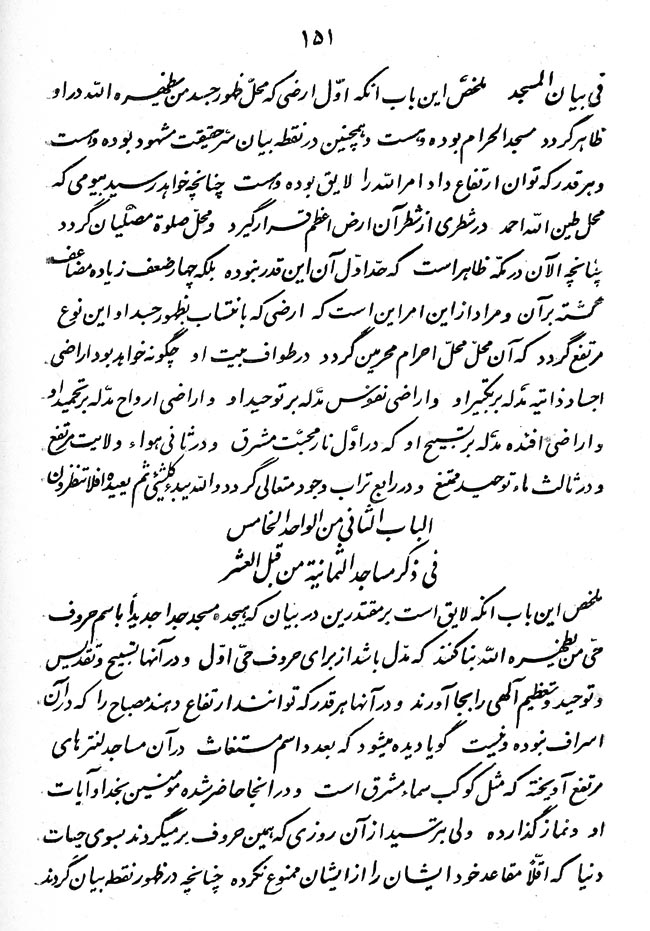 ۱۵۱
فی بیان المسجد ملخص این باب آنکه اوّل ارضی که محلّ ظهور جسد من یظهره الله در او
ظاهر گردد مسجد الحرام بوده وهست وهمچنین در نقطه بیان سرّ حقیقت مشهود بوده وهست
وهر قدر که توان ارتفاع داد امر الله را لایق بوده وهست چنانچه خواهد رسید بیومی که
محل طین الله احمد در شطری از شطر آن ارض اعظم قرار گیرد ومحلّ صلوة مصلّیان گردد
چنانچه الآن در مکّه ظاهر است که حدّ اوّل آن این قدر نبوده بلکه چهار ضعف زیاده مضاعف
گشته بر آن ومراد از این امر این است که ارضی که بانتساب بظهور جسد او این نوع
مرتفع گردد که آن محلّ محلّ احرام محرمین گردد در طواف بیت او چگونه خواهد بود اراضی
اجساد ذاتیه مدلّه بر تکبیر او واراضی نفوس مدلّه بر توحید او واراضی ارواح مدلّه بر تحمید او
واراضی افئده مدلّه بر تسبیح او که در اوّل نار محبّت مشرق ودر ثانی هواء ولایت مرتفع
ودر ثالث ماء توحید ودر رابع تراب وجود متعالی گردد والله یبدء کلشیئی ثم یعیده افلا تنظرون
الباب الثانی من الواحد الخامس
فی ذکر مساجد الثمانیة من قبل العشر
ملخص این باب آنکه لایق است بر مقتدرین در بیان که هیجده مسجد جدا جدیداً باسم حروف
حیّ من یظهره الله بنا کنند که مدلّ باشد از برای حروف حیّ اوّل ودر آنها تسبیح وتقدیس
وتوحید وتعظیم آلهی را بجا آورند ودر آنها هر قدر که توانند ارتفاع دهند مصباح را که در آن
اسراف نبوده ونیست گویا دیده میشود که بعدد اسم مستغاث در آن مساجد لنترهای
مرتفع آویخته که مثل کوکب سماء مشرق است ودر انجا حاضر شده مؤمنین بخدا وآیات
او ونماز گذارده ولی بترسید از آن روزی که همین حروف بر میگردند بسوی حیات
دنیا که اقلّاً مقاعد خود ایشان را از ایشان ممنوع نکرده چنانچه در ظهور نقطه بیان کردند